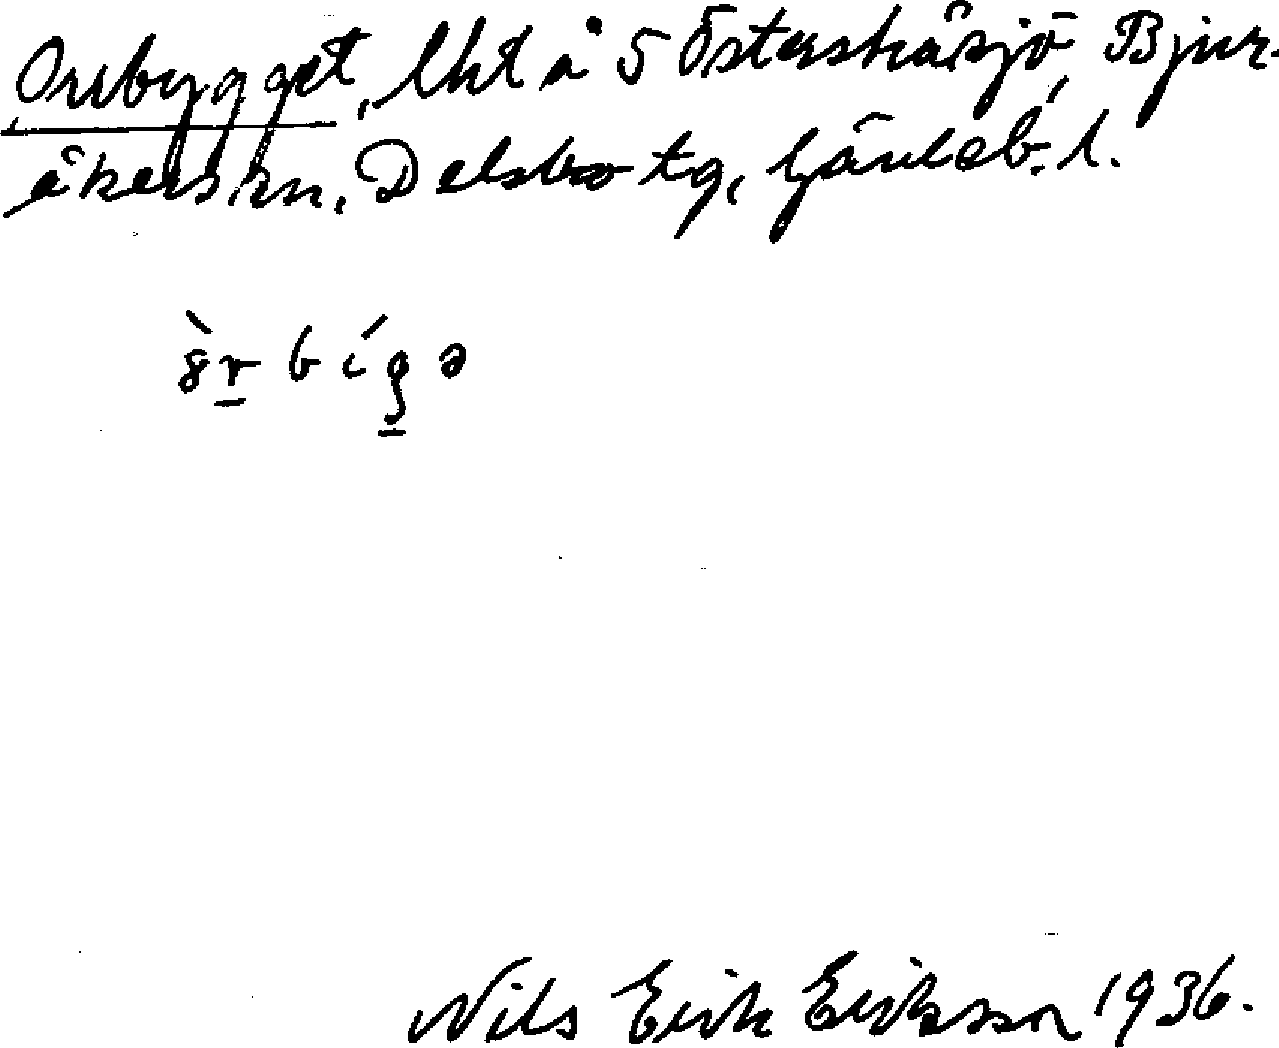 Orrbygget, lht å 5 Österskåsjö, Bjur-
åkers sn, Delsbo tg, Gävleb. l.
Nils Erik Eriksson 1936.